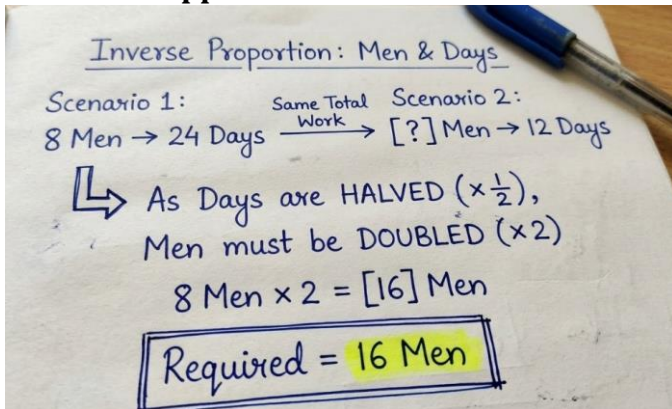 Inverse Proportion: Men & Days
Scenario 1:
8 Men → 24 Days
Same Total
Work
Scenario 2:
[?] Men → 12 Days
As Days are HALVED (×1/2),
Men must be DOUBLED (×2)
8 Men × 2 = [16] Men
Required = 16 Men